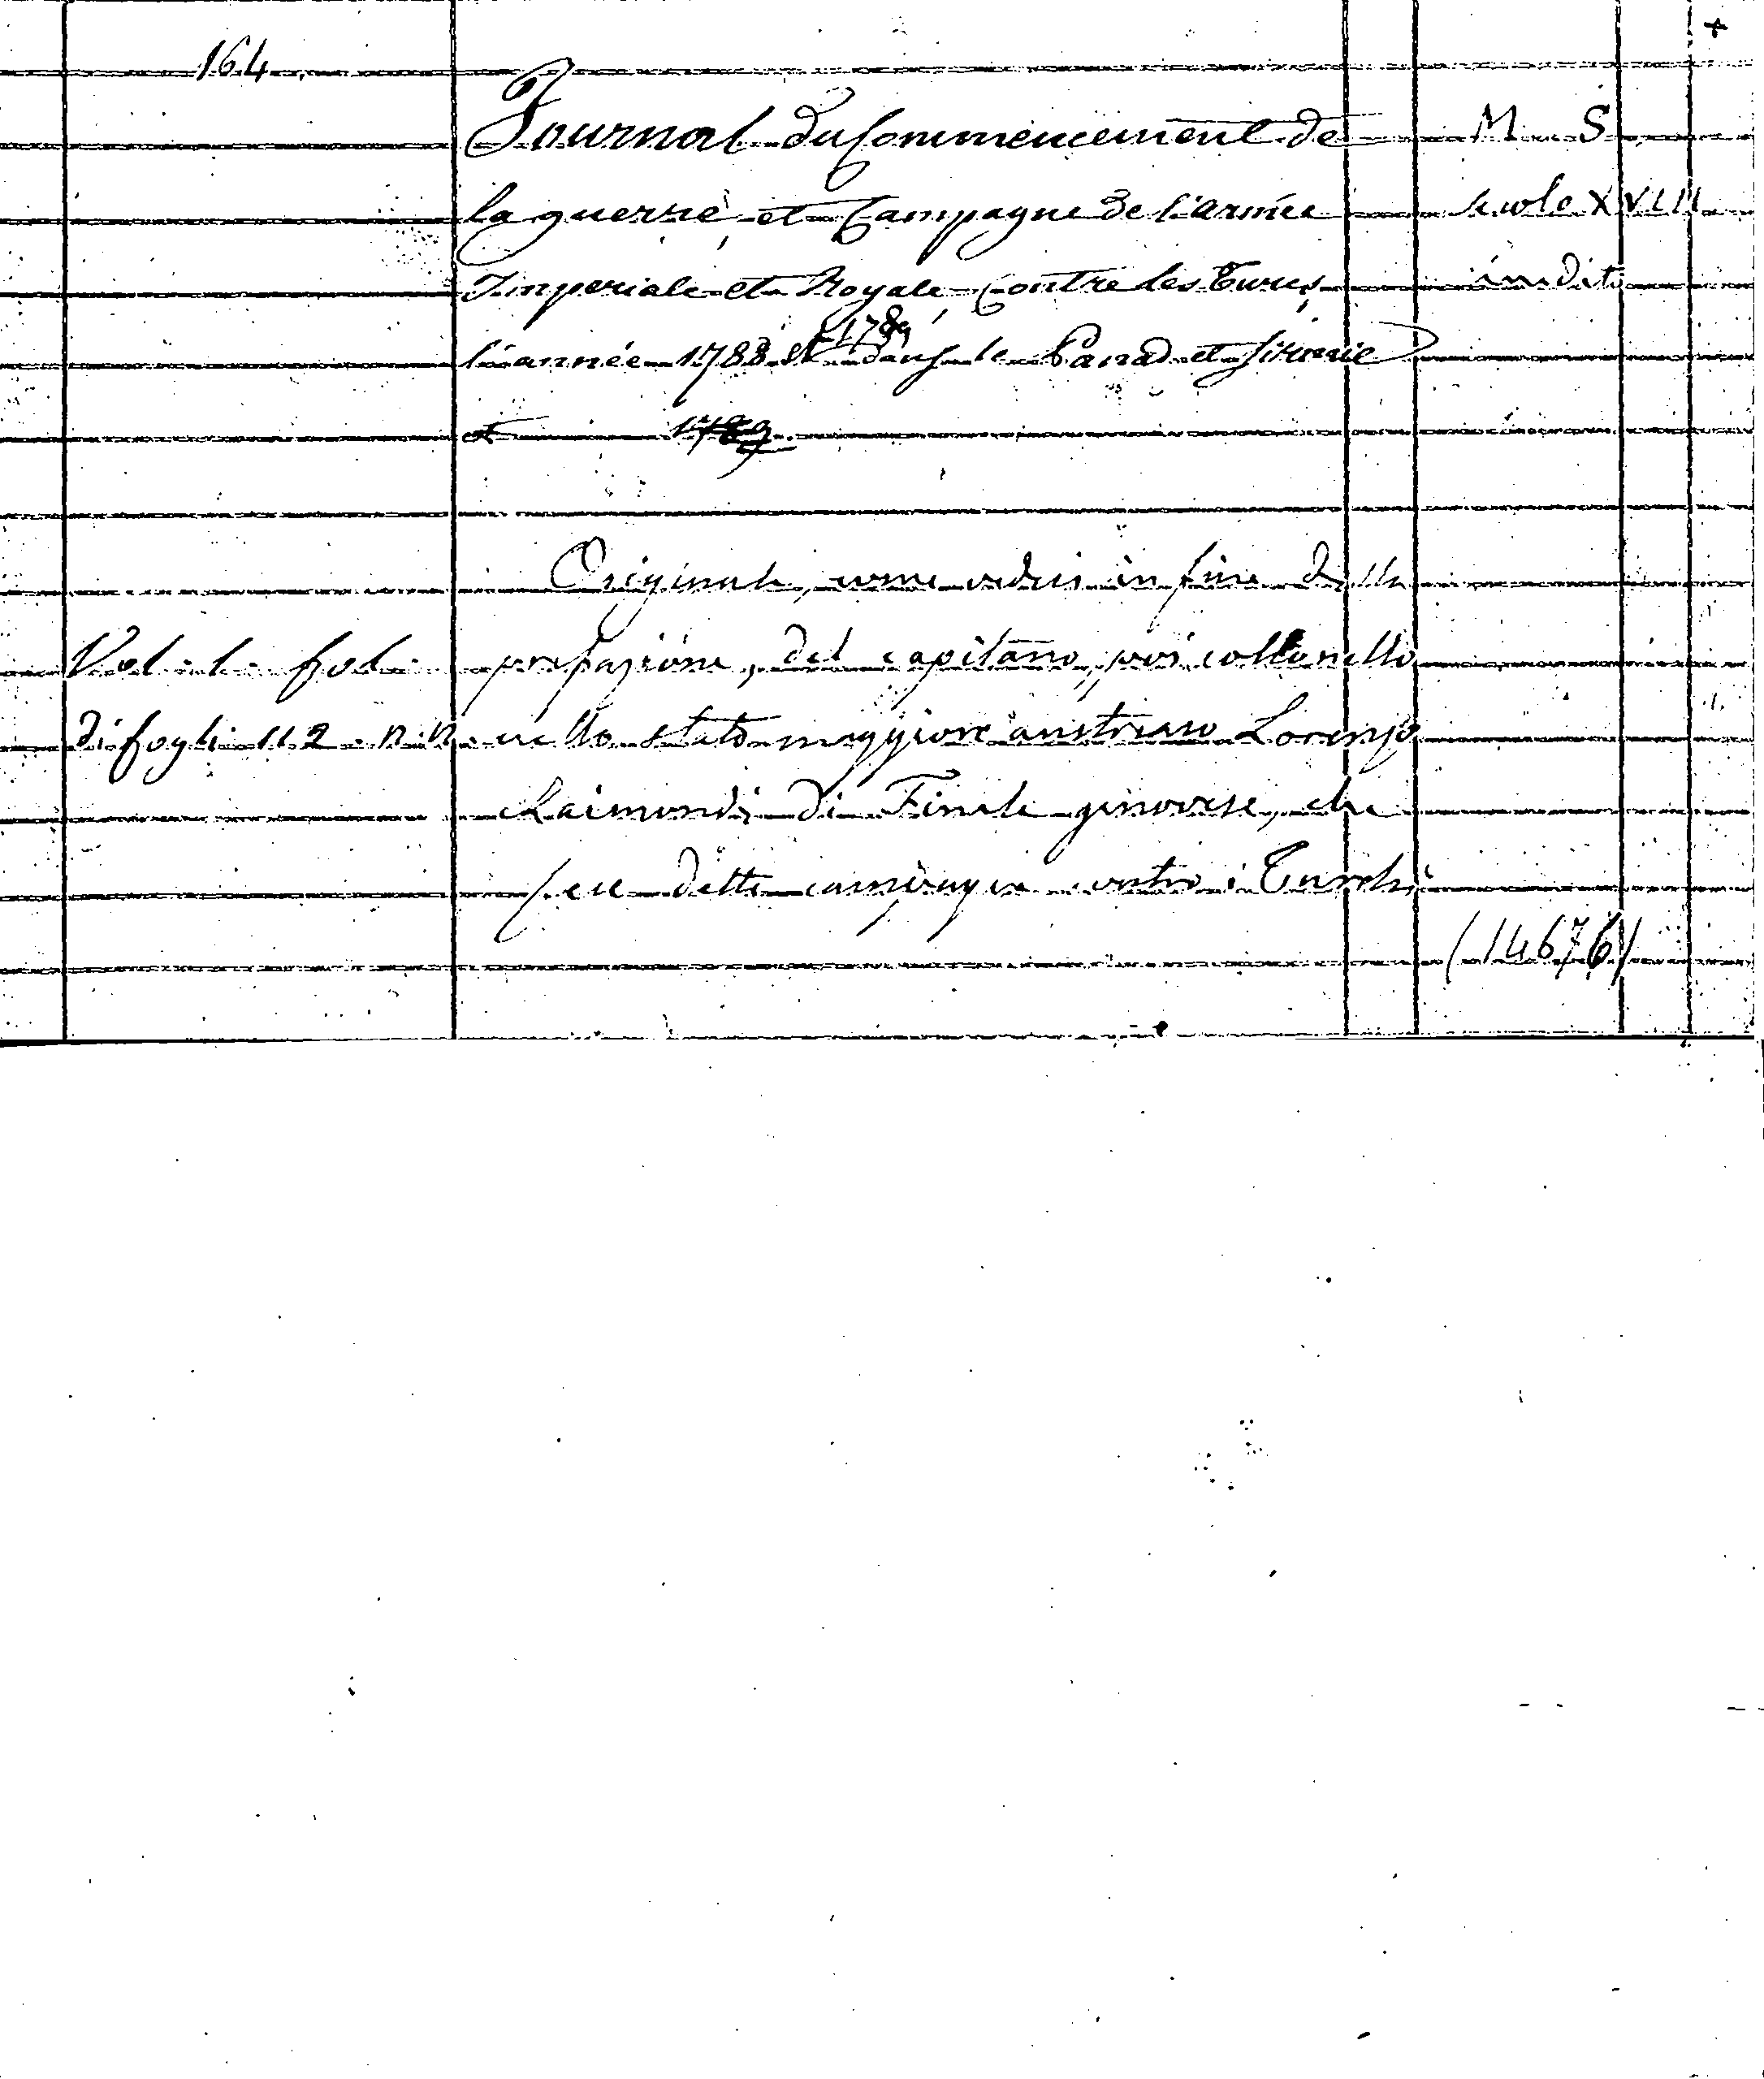 164
Journal du Commencement de
la guerre et Campagne de l'armée
Imperiale et Royale Contre les Turcs
l'année 1788 et 1789 dans le Banad et Sirmie
et 1789
Originale, come vedesi in fine della
prefazione, del capitano, poi collonello
nello stato maggiore austriaco Lorenzo
Raimondi di Finale genovese, che
fece dette campagne contro i Turchi
Vol. 1. fol.
di fogli 112. n. n.
M. S.
secolo XVIII
inedito
(14676)